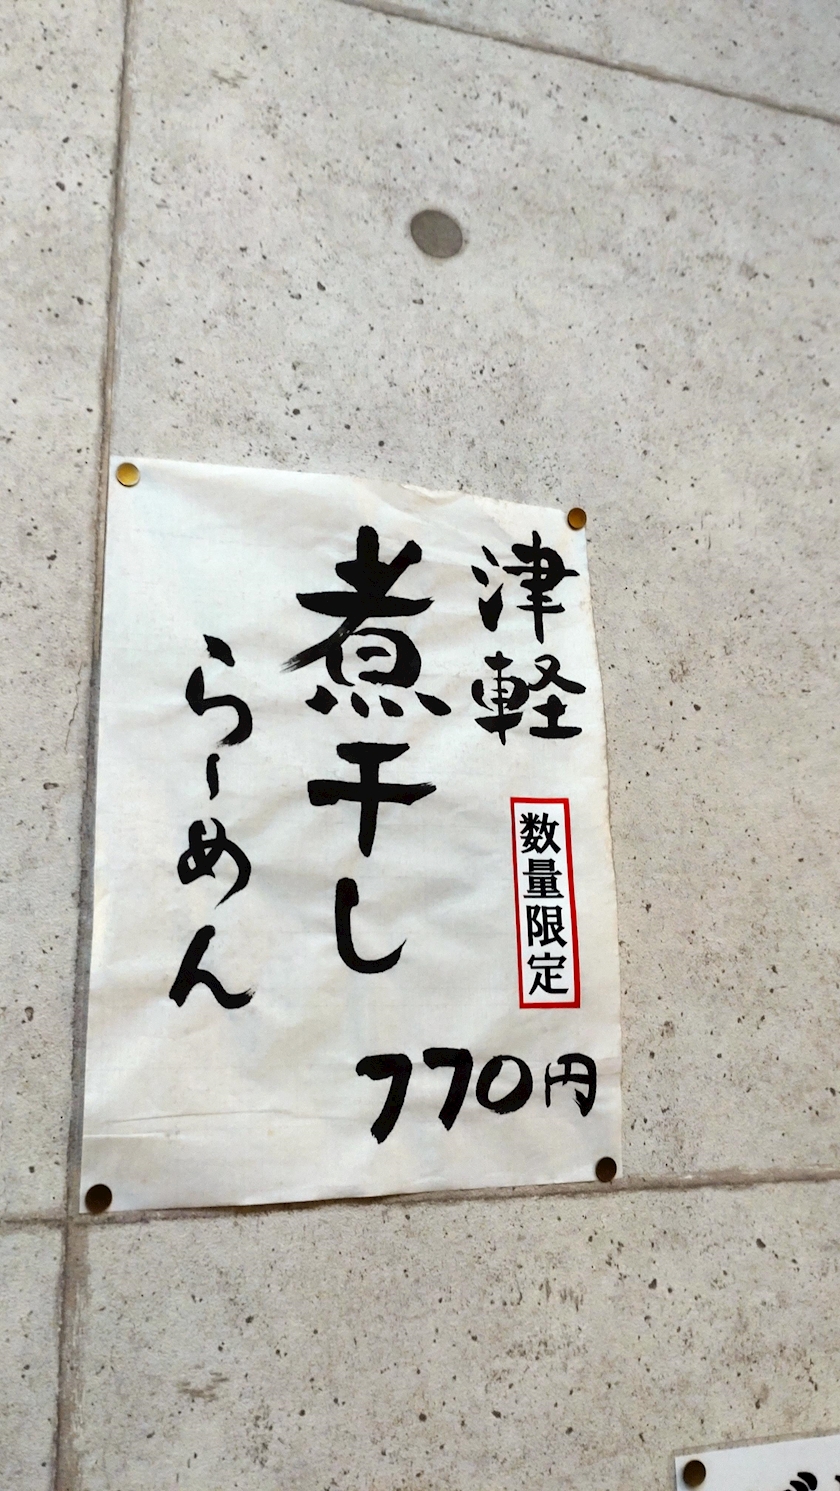 津軽
数量限定
煮干し
らーめん
770円